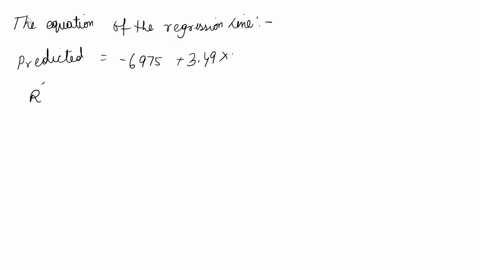 The equation of the regression line:-
Predicted = -6975 + 3.49x
R